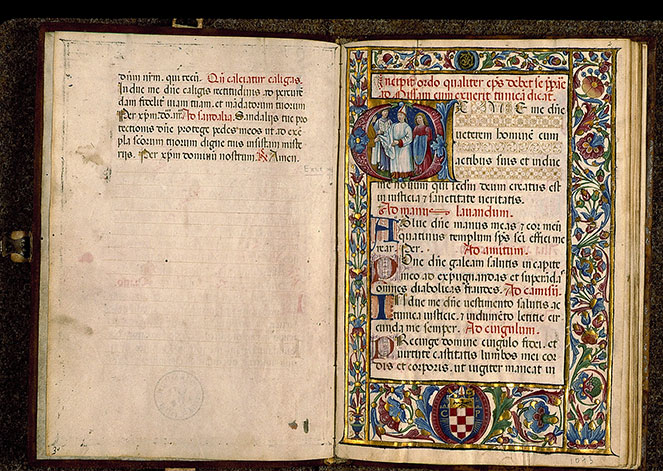 dñm nr̃m. qui tecũ. Cũ calciatur caligas.
Indue me dñe caligis rectitudinis ad percutiẽ
dam fidelit̃ uiam tuam. et mãdatorum tuorum
Per xp̃m dõ.m̃. Ad sandalia. Sandaliis tue pro
tectionis dñe protege pedes meos ut ad exẽ
pla scõrum tuorum digne tuis insistam miste
riis. Per xp̃m dominũ nostrum. R̃ Amen.
Incipit ordo qualiter ep̃s debet se p̃pare
ad Missam cum exuerit tunicã dicat.
me dñe
ueterem hominẽ cum
actibus suis et indue
me nouum qui sedm̃ deum creatus est
in iusticia ⁊ sanctitate ueritatis.
Ad manus lauandum.
Ablue dñe manus meas ⁊ cor meũ
quatinus templum sp̃s sc̃i effici me
rear. Per. Ad amitum.
Pone dñe galeam salutis in capite
meo ad expugnandas et superãdas
omnes diabolicas fraudes. Ad camisiã.
Indue me dñe uestimento salutis ac
tunica iusticie. ⁊ indumẽto letitie cir
cunda me semper. Ad cingulum.
Precinge domine cingulo fidei. et
uirtute castitatis lumbos mei cor
dis et corporis. ut iugiter maneat in
C P